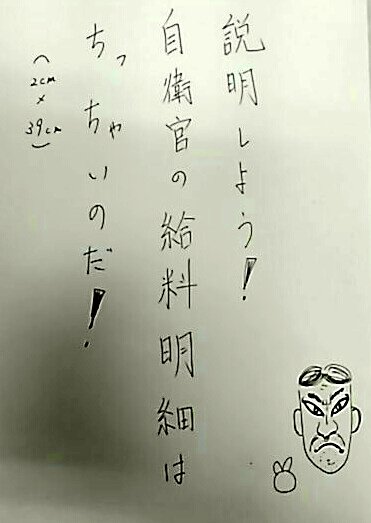 説明しよう!
自衛官の給料明細は
ちっちゃいのだ!
(2cm×39cm)